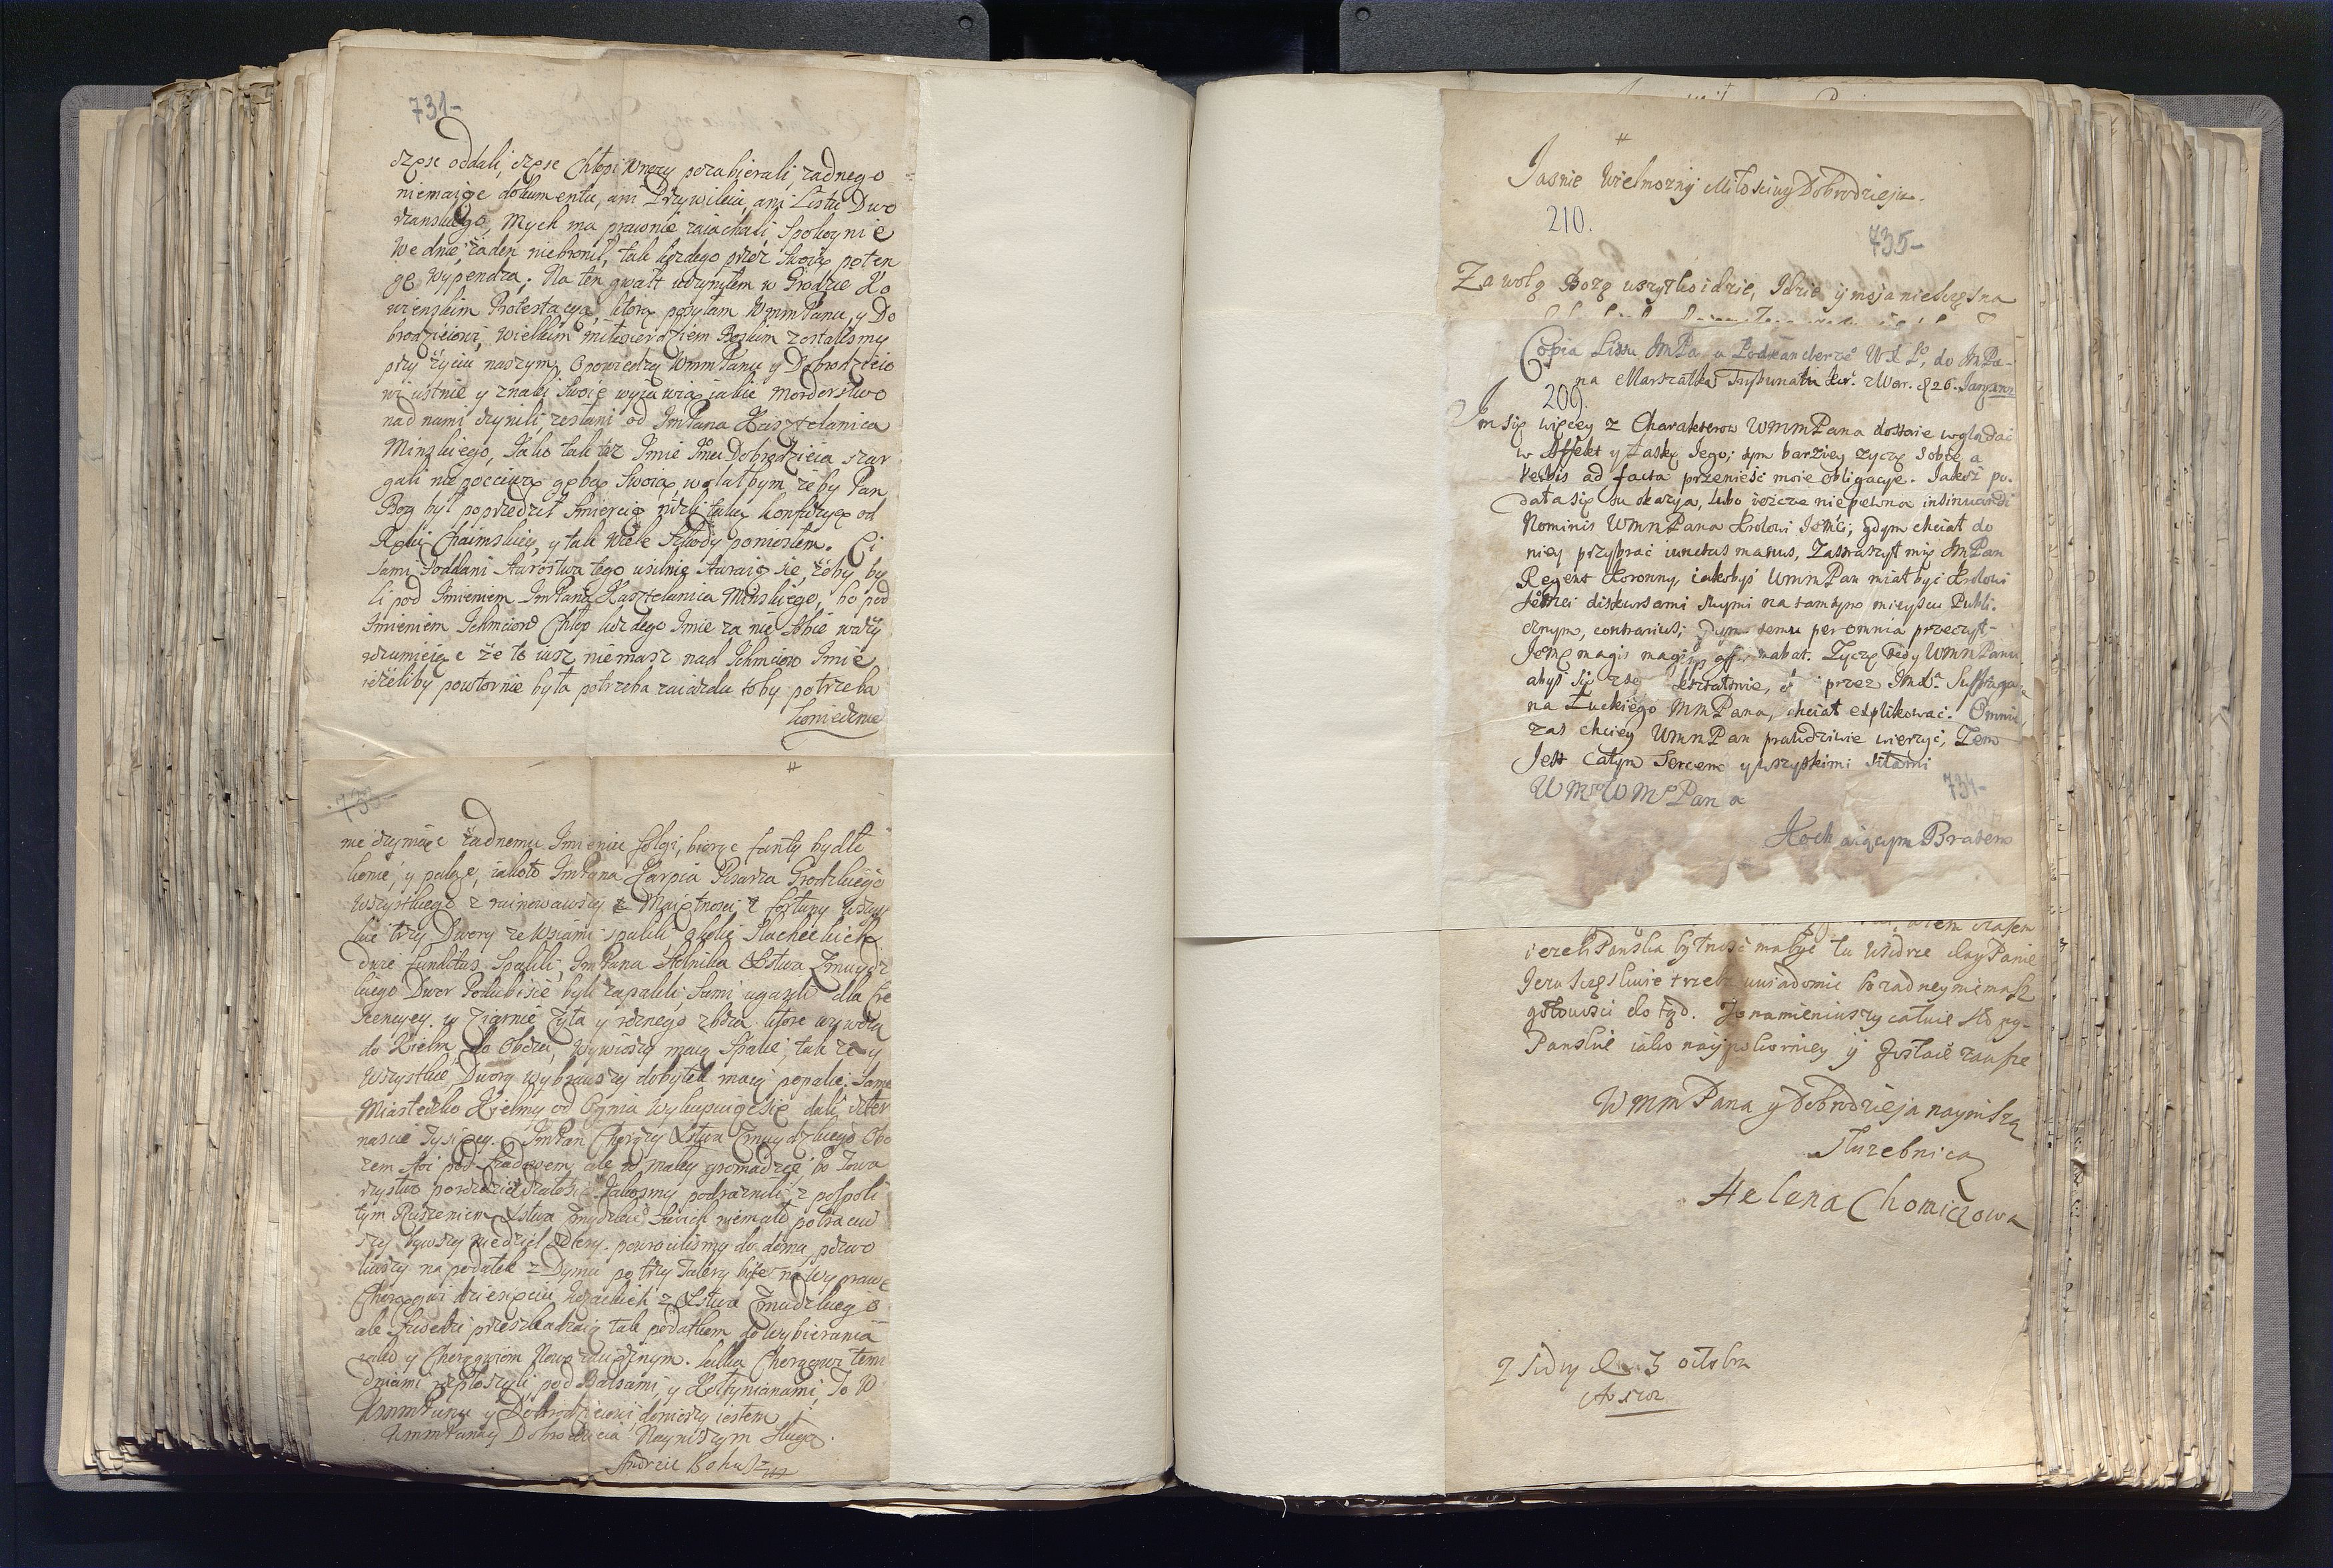 731-
częsc oddali, częsc Chłopi Wnocy pozabierali, zadnego
niemaiąc dokumentu, ani Przywileiu, ani Listu Dwo
rzanskiego, Mych ma prawnie zaiachali, Spokoynie
We dnie, żaden niebronił, tak każdego przez swoią poten
cyę wypendza; Na ten gwałt uczyniłem w Grodzie Ko
wienskim Protestacyą, ktorą posyłam WmmPanu, y Do
brodzieiowi, wielkim miłosierdziem Boskim zostalismy
przy życiu naszym, Opowiedzą WmmPanu y Dobrodzieio
wi ustnie y znaki Swoie wyiawią iakie morderstwo
nad nami czynili, zesłani od ImPana Kasztelanica
Minskiego, Jako tak też Imie Dobrodzieia szar
gali niepoczciwą gębą Swoią wolałbym żeby Pan
Bog był poprzedził Smiercią niżli taką konfuzyą od
Chaimskiey, y tak wiele Szkody poniosłem. Ci
Sami Poddani Starostwa tego usilnie staraią się, żeby by
li pod Imieniem ImPana Kasztelanica Minskiego, bo pod
Imieniem Ichmciow Chłop każdego Imie za nic sobie waży
rozumieiąc że to iusz niemasz nad Ichmciow Imie,
ieżeliby powtornie była potrzeba zaiazdu to by potrzeba
koniecznie
#
733-
nie czyniąc żadnemu Imieniu folgi, biorąc fanty bydło
konie, y paląc, iakoto ImPana Karpia Pisarza Grodzkiego
Wszystkiego z ruinowawszy z Maiętnosci z fortuny wszys
kie trzy Dwory ze Wsiami spalili, Okolic Slacheckich
dwie funditus Spalili, ImPana Stolnika Xstwa Zmuydz
kiego Dwor Podubisie byli zapalili, Sami ugasili dla Kre
scencyey w Ziarnie Zyta y roznego zboza ktore wywożą
do Kielm, do Obozu, Wywiozszy maią Spalic, tak że y
Wszystkie Dwory wybrawszy dobytek maią popalic. Same
Miasteczko Kielmy od Ognia wykupuiącesię dali czter
nascie Tysięcy. ImPan Chorąży Xstwa Zmuydzkiego Obo
zem stoi pod Szadowem, ale w małey gromadzie, bo Towa
rzystwo Jakosmy podrożnili, z pospoli
tym Ruszeniem Xstwa Zmuydzkie Swich niemało potraciw
szy bywszy niedziel cztery powrocilismy do domu, pozwo
liwszy na podatek z Dymu po trzy Talery bite na Wyprawę
Chorągwi dziesięciu kozackich z Xstwa Zmudzkiego
ale Szwedzi przeszkadzaią tak podatkom do Wybierania
iako y Chorągwiom Nowo zaciężnym. kilka Chorągwi temi
dniami rozploszyli, pod Batsami, y Kołtynianami, To W
WmmPanu y Dobrodzieiowi doniozszy iestem
WmmPana y Dobrodzieia Nayniszym sługą.
Andrzei Bohusz
#
Jasnie Wielmozny Miłosciwy Dobrodzieju.
210.
735-
Za wolą Bozą wszytko idzie, Idzie y moja nieszczęsna
Copia Listu JmPa-a Podkanclerzo WXLo, do JmPa-
na Marszałka Trybunału z War. 26.
209.
Im się więcey z Charakterow WmmPana dostaie wglądać
w Affekt y Łaskę Jego; tym barziey życzę sobie a
verbis ad facta przenieść moie obligacye. Jakoż po-
dała się tu okazya, lubo ieszcze niepewna insinuandi
Nominis WmnPana Krolowi Jmci; gdym chciał do
niey przybrać iunctas manus, Zastraszył mię JmPan
Regent Koronny, iakobyś WmmPan miał być Krolowi
Jmci diskursami swymi na tamtym mieyscu Publi-
cznym, contrarius; gdym temu per omnia przeczył-
Jemę magis magisq affirmabat. Życzę tedy WmnPanu
abyś się przez Suffraga-
na Łuckiego MmPana, chciał explikować. Omnie,
zas chciey WmnPan prawdziwie wierzyć, Zem
Jest Całym Sercem y wszystkimi siłami
WMoWMoPana
734-
Kochaiącym Bratem
czasem
iezeli Panska bytność mabyć tu Wsidrze day Panie
Jezu Szczęsliwie trzeba uwiadomic bo zadney niemasz
gotowości do tąd. Jonamieniuszy całuie sto py-
Panskie iako naypokorniey y zostaie zawsze
WmmPana y Dobrodzieja nayniszą
słuzebnicą
Helena Chomiczowa
z Sidry d 3 octobra